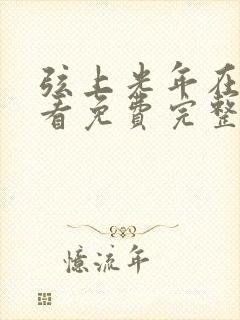 弦上光年在
看免费完整
憶流年